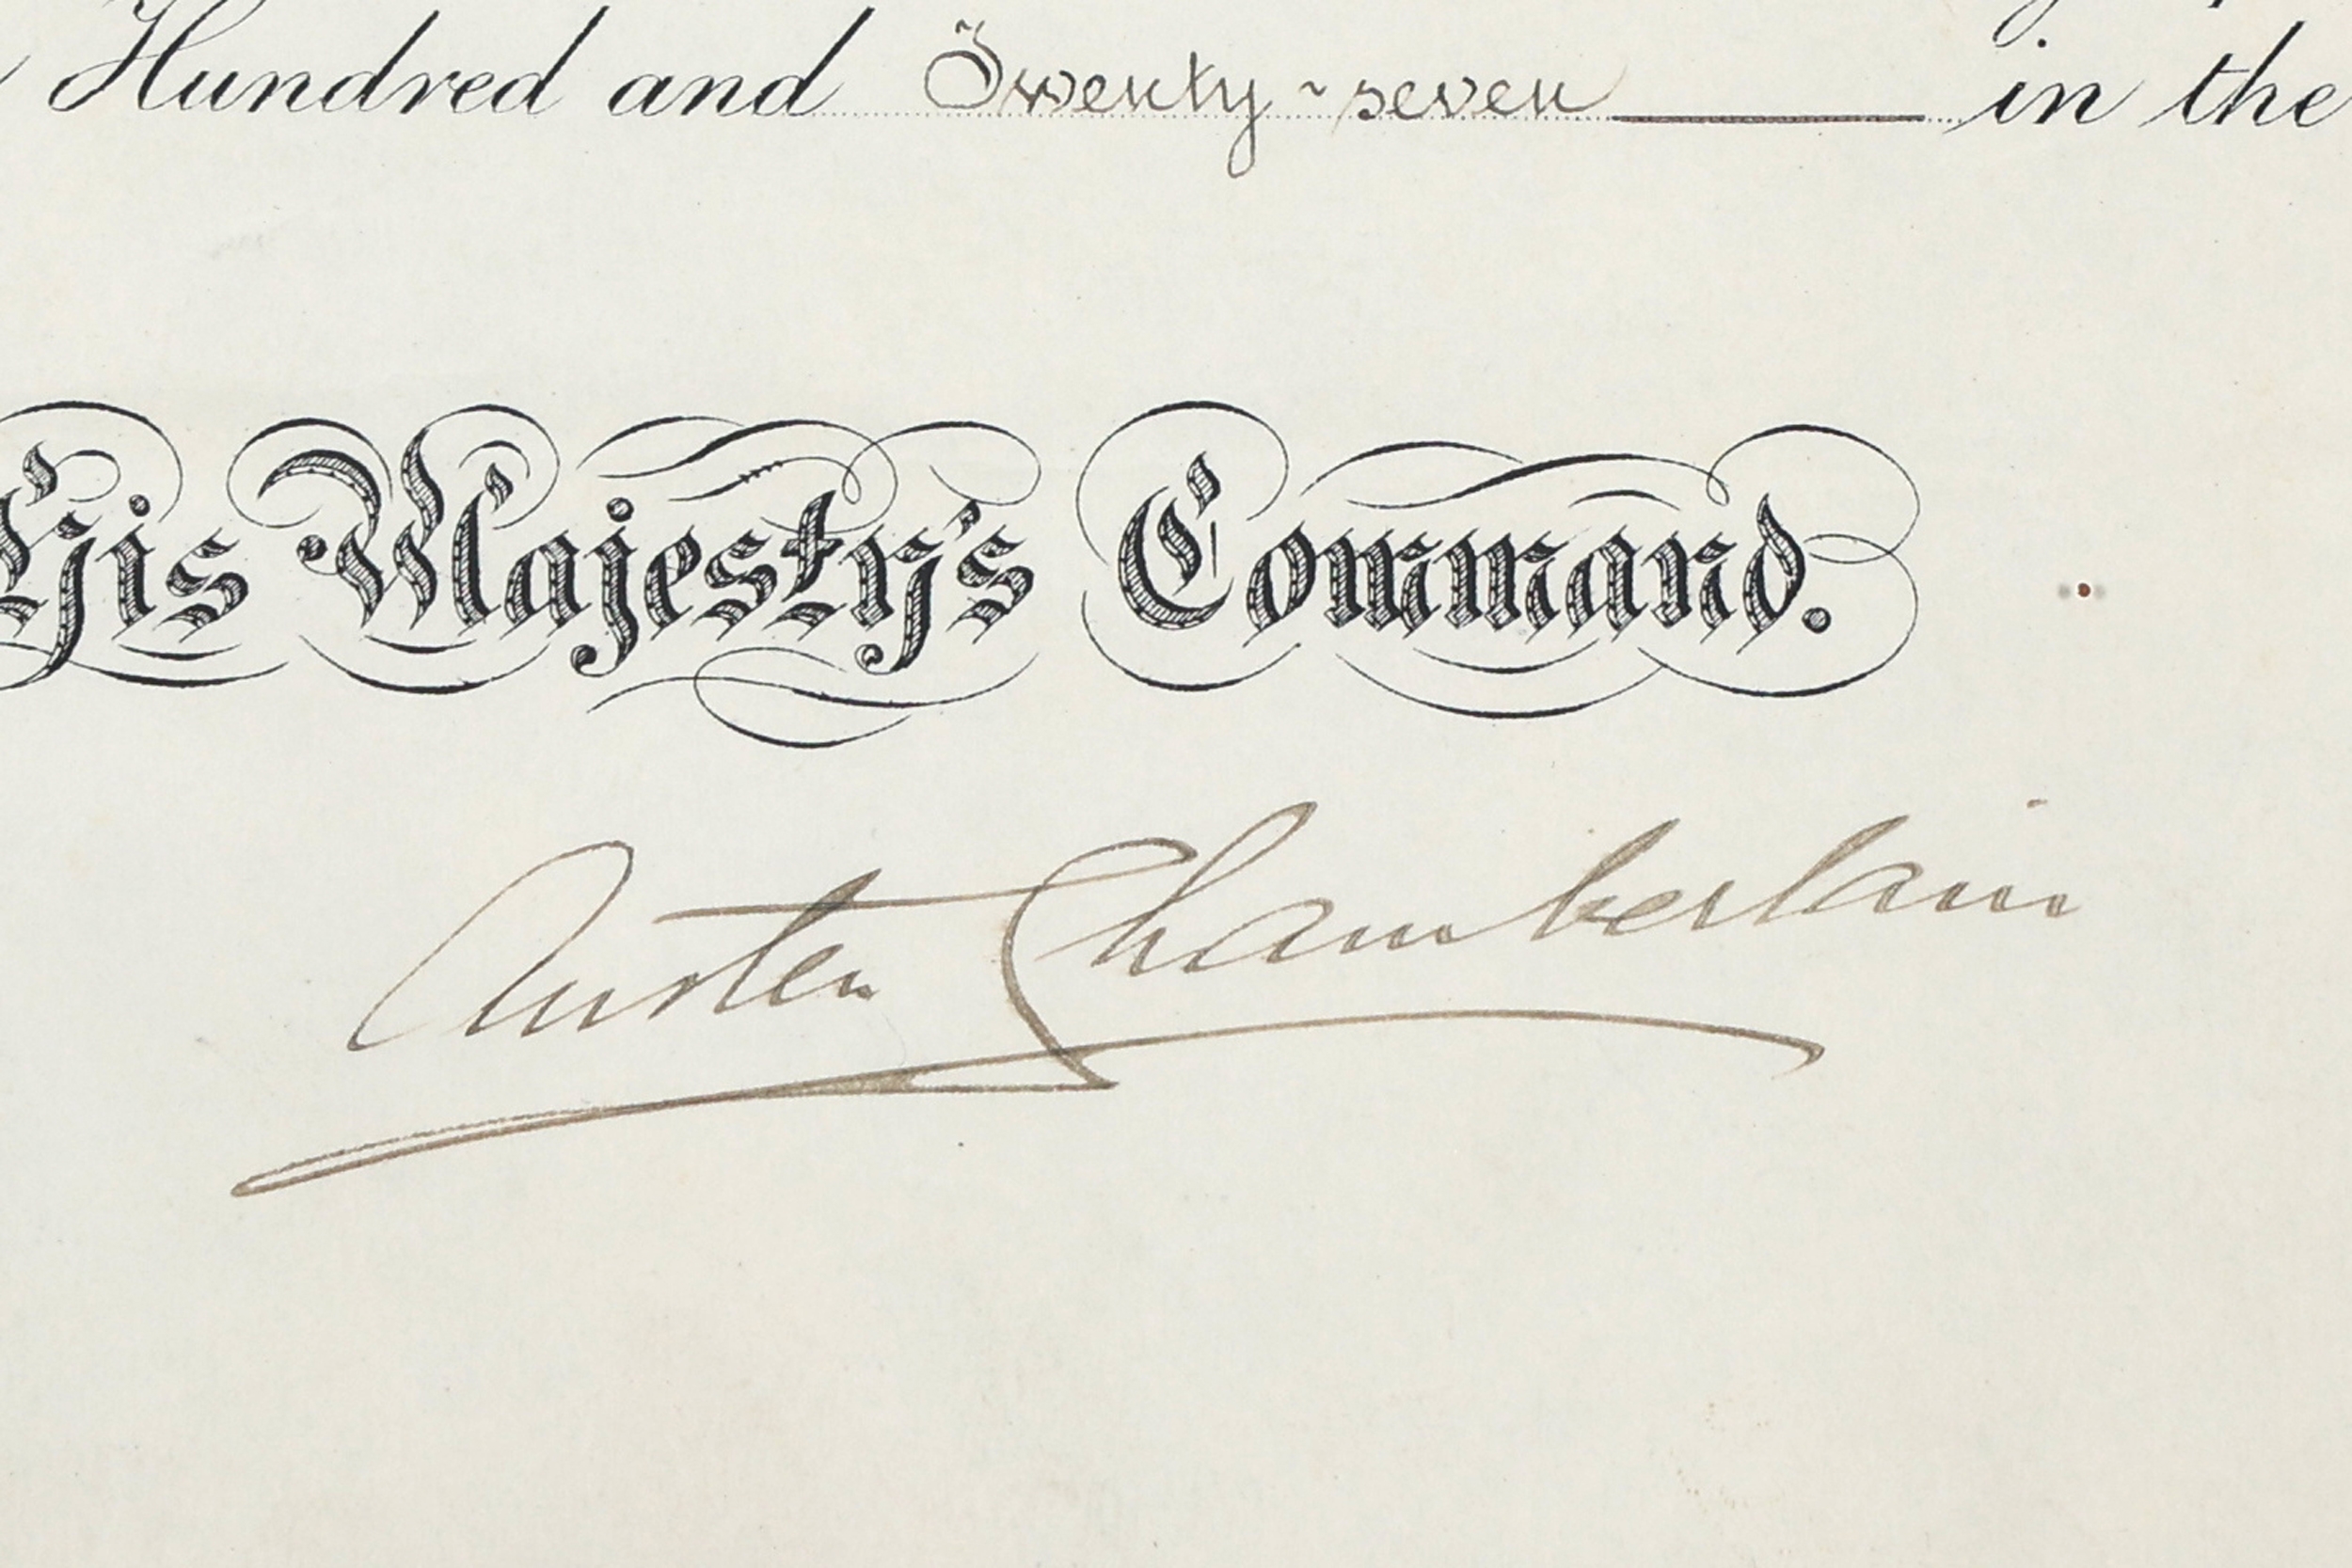 Hundred and Twenty-seven in the
His Majesty's Command.
Austen Chamberlain